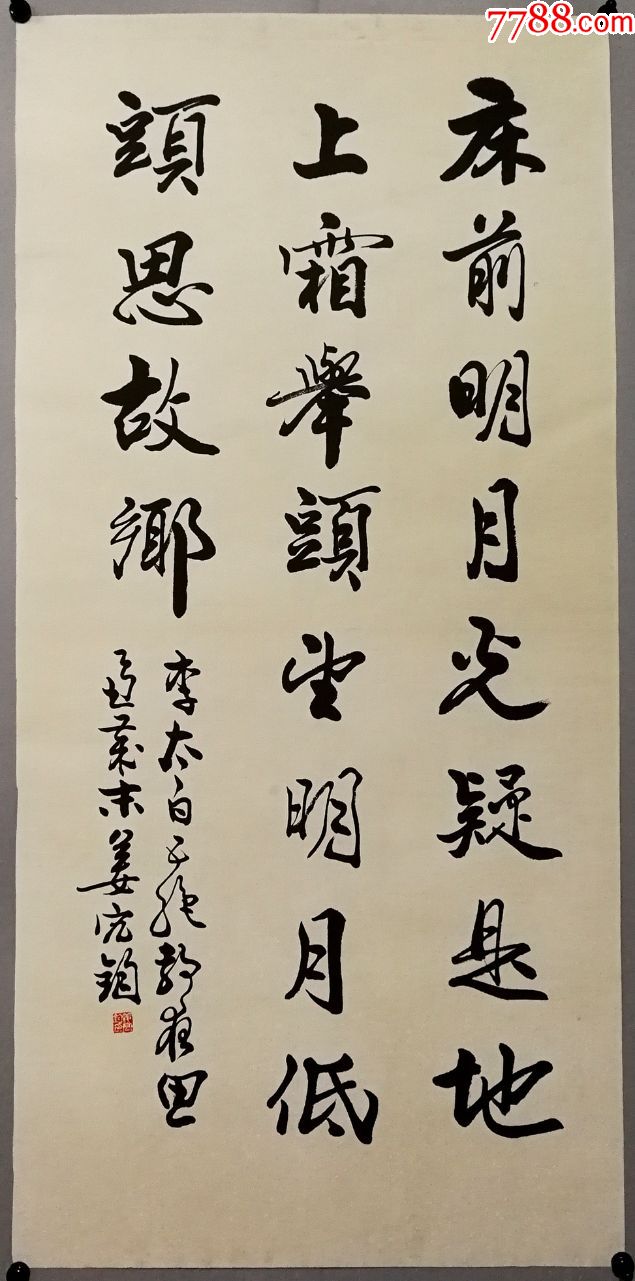 7788.com
床前明月光疑是地
上霜舉頭望明月低
頭思故鄉
李太白五絕靜夜思
姜